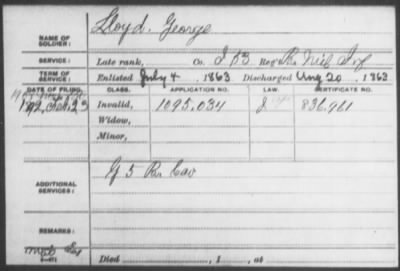 NAME OF SOLDIER: Lloyd, George
SERVICE: Late rank, Co. I 53 Reg't Pa. Mil Inf
TERM OF SERVICE: Enlisted July 4, 1863 Discharged Aug 20, 1863
DATE OF FILING. CLASS. APPLICATION NO. LAW. CERTIFICATE NO.
1892, Feb. 23 Invalid, 1095.034 836.961
Widow,
Minor,
ADDITIONAL SERVICES: G 5 Pa Cav
REMARKS:
Died , 1 , at